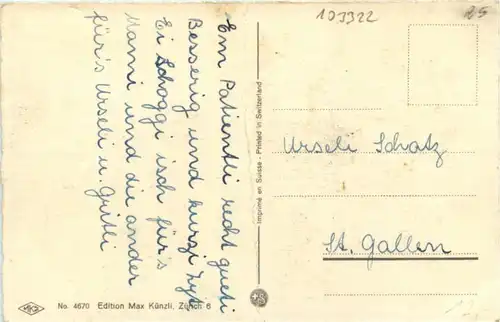 103322
25
Em Patientli recht gueti
Besserig und kurzi Zyt
Ei Schoggi isch für's
Mami und die ander
für's Urseli u. Gritli
Imprimé en Suisse - Printed in Switzerland
Urseli Schatz
St. Gallen
No. 4670 Edition Max Künzli, Zürich 6